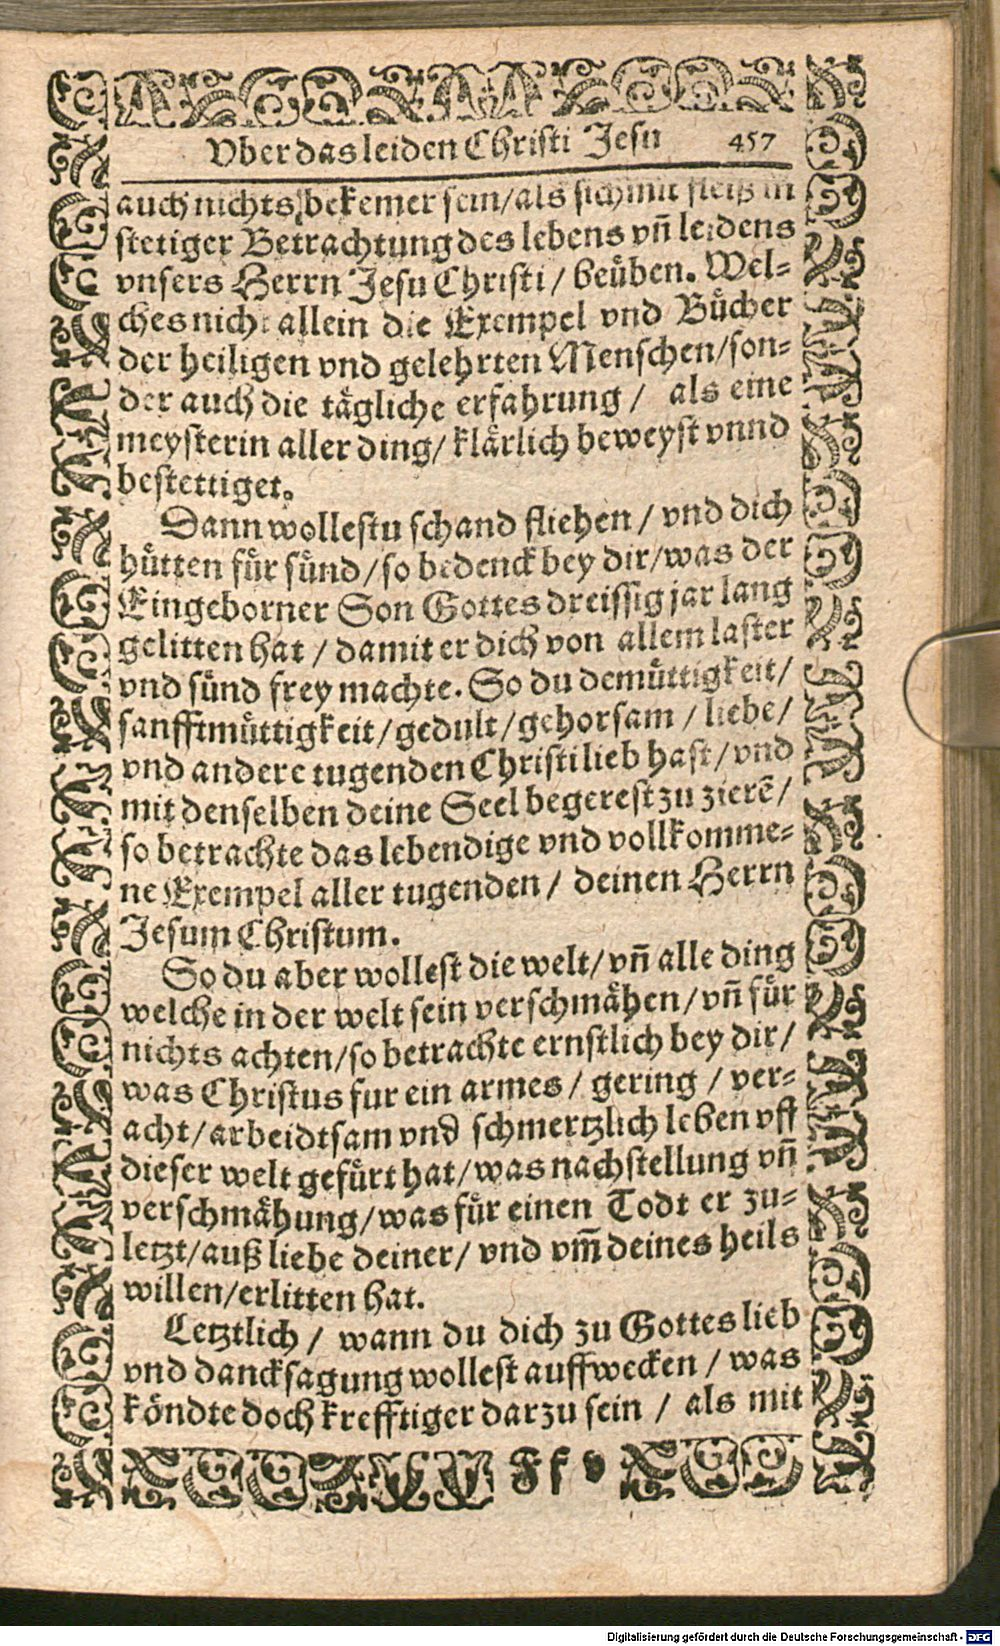 Vber das leiden Christi Jesu 457
auch nichts bekemer sein/als sich mit fleiß in
stetiger Betrachtung des lebens vn̄ leidens
vnsers Herrn Jesu Christi / beüben. Wel⸗
ches nicht allein die Exempel vnd Bücher
der heiligen vnd gelehrten Menschen/son⸗
der auch die tägliche erfahrung / als eine
meysterin aller ding/ klärlich beweyst vnnd
bestettiget.
Dann wollestu schand fliehen / vnd dich
hütten für sünd/so bedenck bey dir/was der
Eingeborner Son Gottes dreissig jar lang
gelitten hat / damit er dich von allem laster
vnd sünd frey machte. So du demüttigkeit/
sanfftmüttigkeit/gedult/gehorsam / liebe/
vnd andere tugenden Christi lieb hast/vnd
mit denselben deine Seel begerest zu zierē/
so betrachte das lebendige vnd vollkomme⸗
ne Exempel aller tugenden / deinen Herrn
Jesum Christum.
So du aber wollest die welt/vn̄ alle ding
welche in der welt sein verschmähen/vn̄ für
nichts achten/so betrachte ernstlich bey dir/
was Christus fur ein armes / gering / ver⸗
acht/arbeidtsam vnd schmertzlich leben vff
dieser welt gefürt hat/was nachstellung vn̄
verschmähung/was für einen Todt er zu⸗
letzt/auß liebe deiner/ vnd vm̄ deines heils
willen/erlitten hat.
Letztlich / wann du dich zu Gottes lieb
vnd dancksagung wollest auffwecken / was
köndte doch krefftiger darzu sein / als mit
Ff v
Digitalisierung gefördert durch die Deutsche Forschungsgemeinschaft - DFG